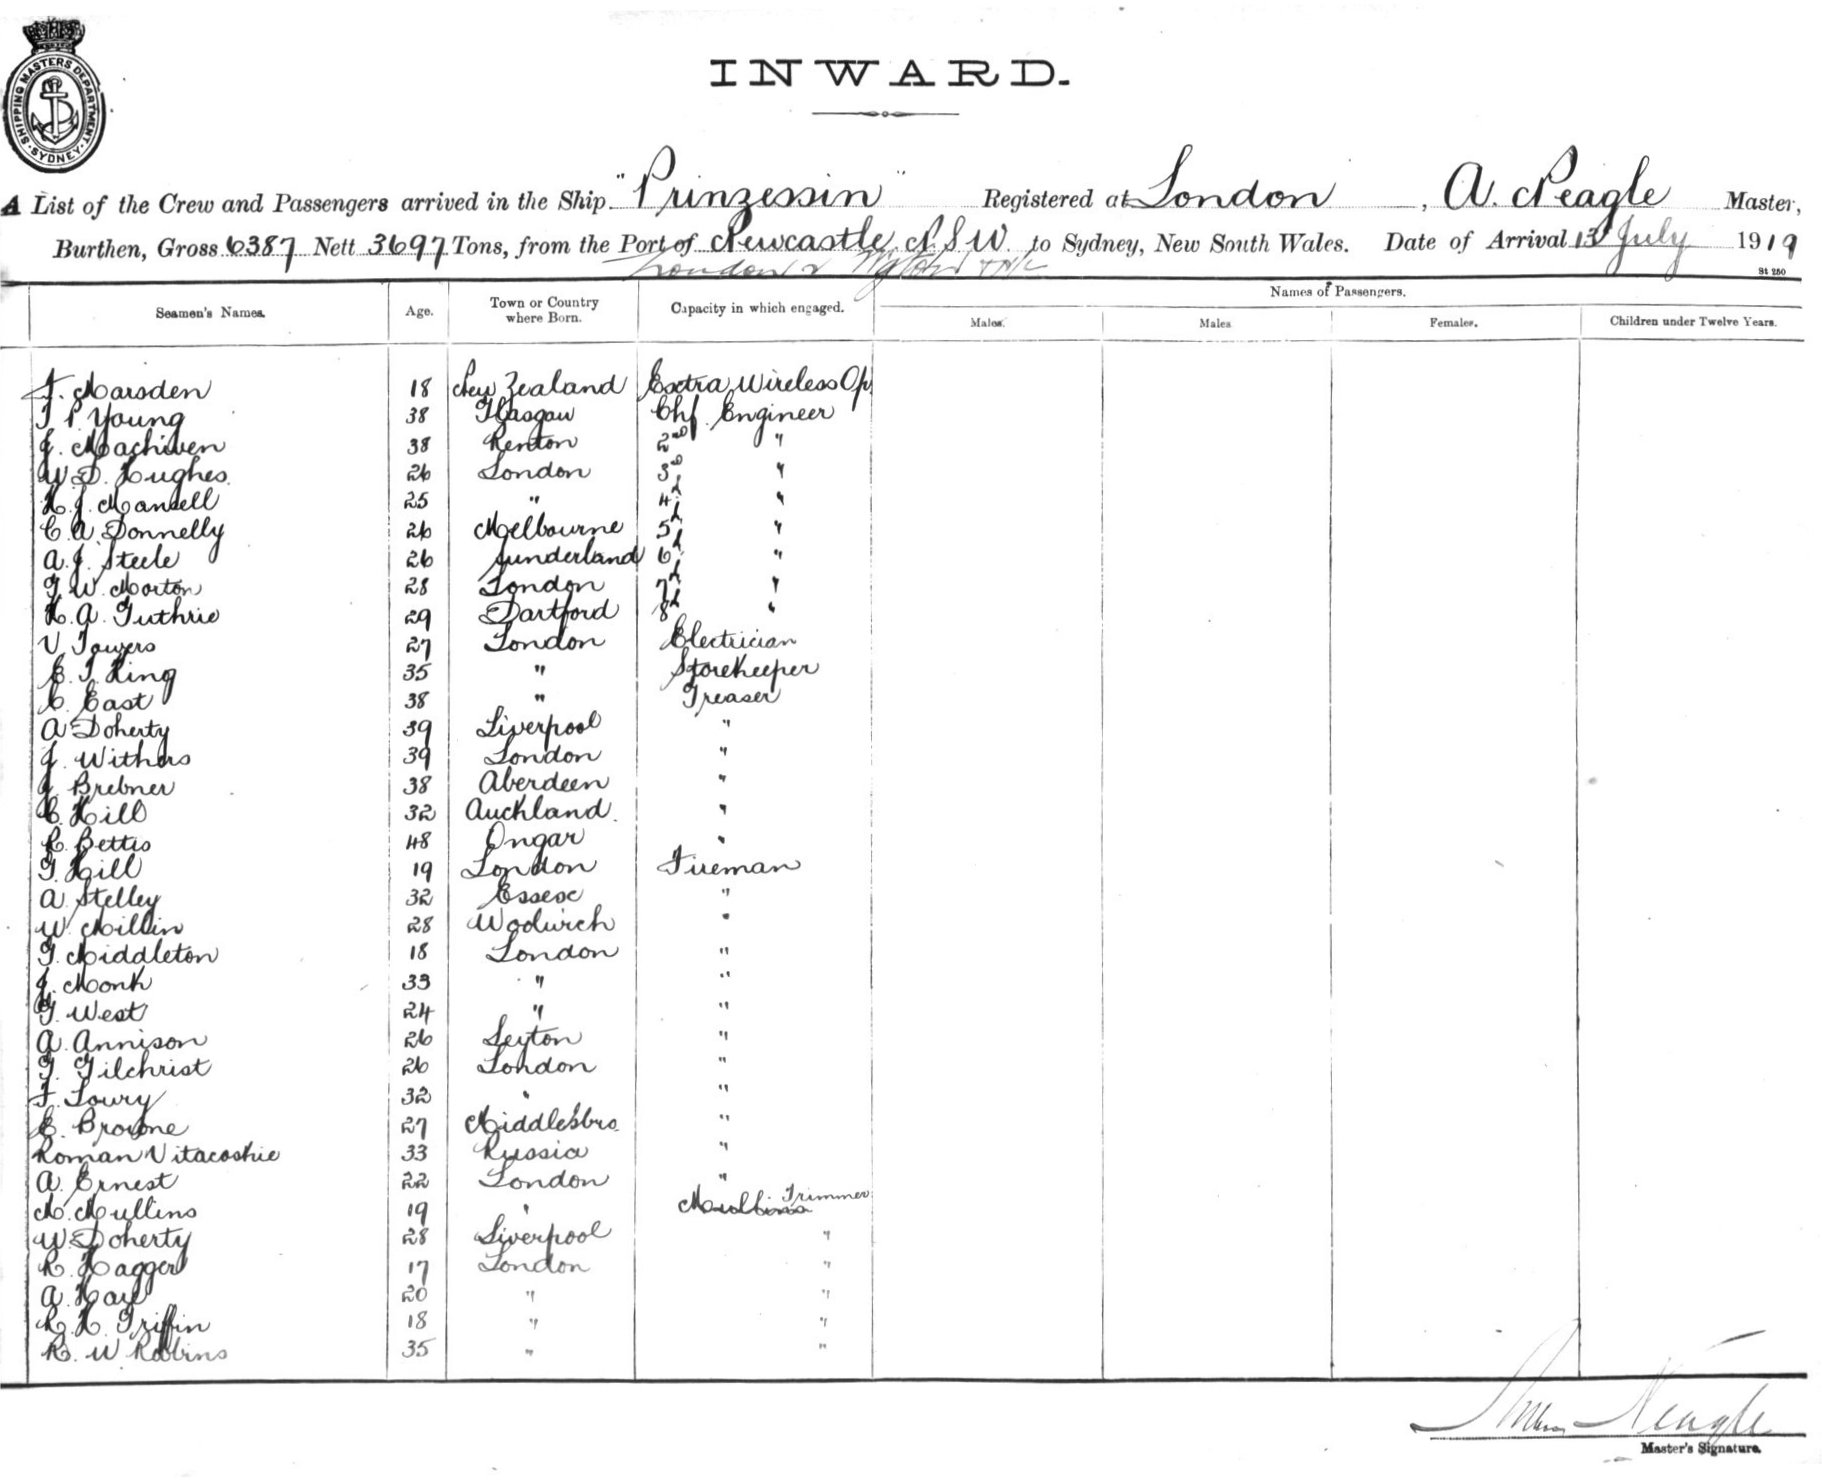 SHIPPING MASTERS DEPARTMENT
SYDNEY
INWARD.
A List of the Crew and Passengers arrived in the Ship "Prinzessin" Registered at London, A. Neagle Master,
Burthen, Gross 6387 Nett 3697 Tons, from the Port of Newcastle N.S.W. to Sydney, New South Wales. Date of Arrival 13 July 1919
London &
St 250
Seamen's Names. Age. Town or Country where Born. Capacity in which engaged. Names of Passengers.
Males. Males Females. Children under Twelve Years.
F. Marsden 18 New Zealand Extra Wireless Op
T P. Young 38 Glasgow Chf. Engineer
J. Machiven 38 Renton 2nd "
W. D. Hughes. 26 London 3rd "
H. J. Mansell 25 " 4th "
C. A. Donnelly 26 Melbourne 5th "
A. J. Steele 26 Sunderland 6th "
G. W. Morton 28 London 7th "
H. A. Guthrie 29 Dartford 8th "
V Towers 27 London Electrician
E. T. King 35 " Storekeeper
C. East 38 " Greaser
A Doherty 39 Liverpool "
J. Withers 39 London "
J. Brebner 38 Aberdeen "
C. Hill 32 Auckland. "
R. Bettis 48 Ongar "
G. Hill 19 London Fireman
A. Stelley 32 Essex "
W. Millin 28 Woolwich "
G. Middleton 18 London "
J. Monk 33 " "
G. West 24 " "
A. Annison 26 Leyton "
G. Gilchrist 26 London "
F. Lowry 32 " "
E. Browne 27 Middlesbro. "
Roman Vitacoskie 33 Russia "
A. Ernest 22 London "
M. Mullins 19 " Mullins Trimmer
W. Doherty 28 Liverpool "
R. Hagger 17 London "
A. Hare 20 " "
R. H. Griffin 18 " "
R. W. Robins 35 " "
Neagle
Master's Signature.